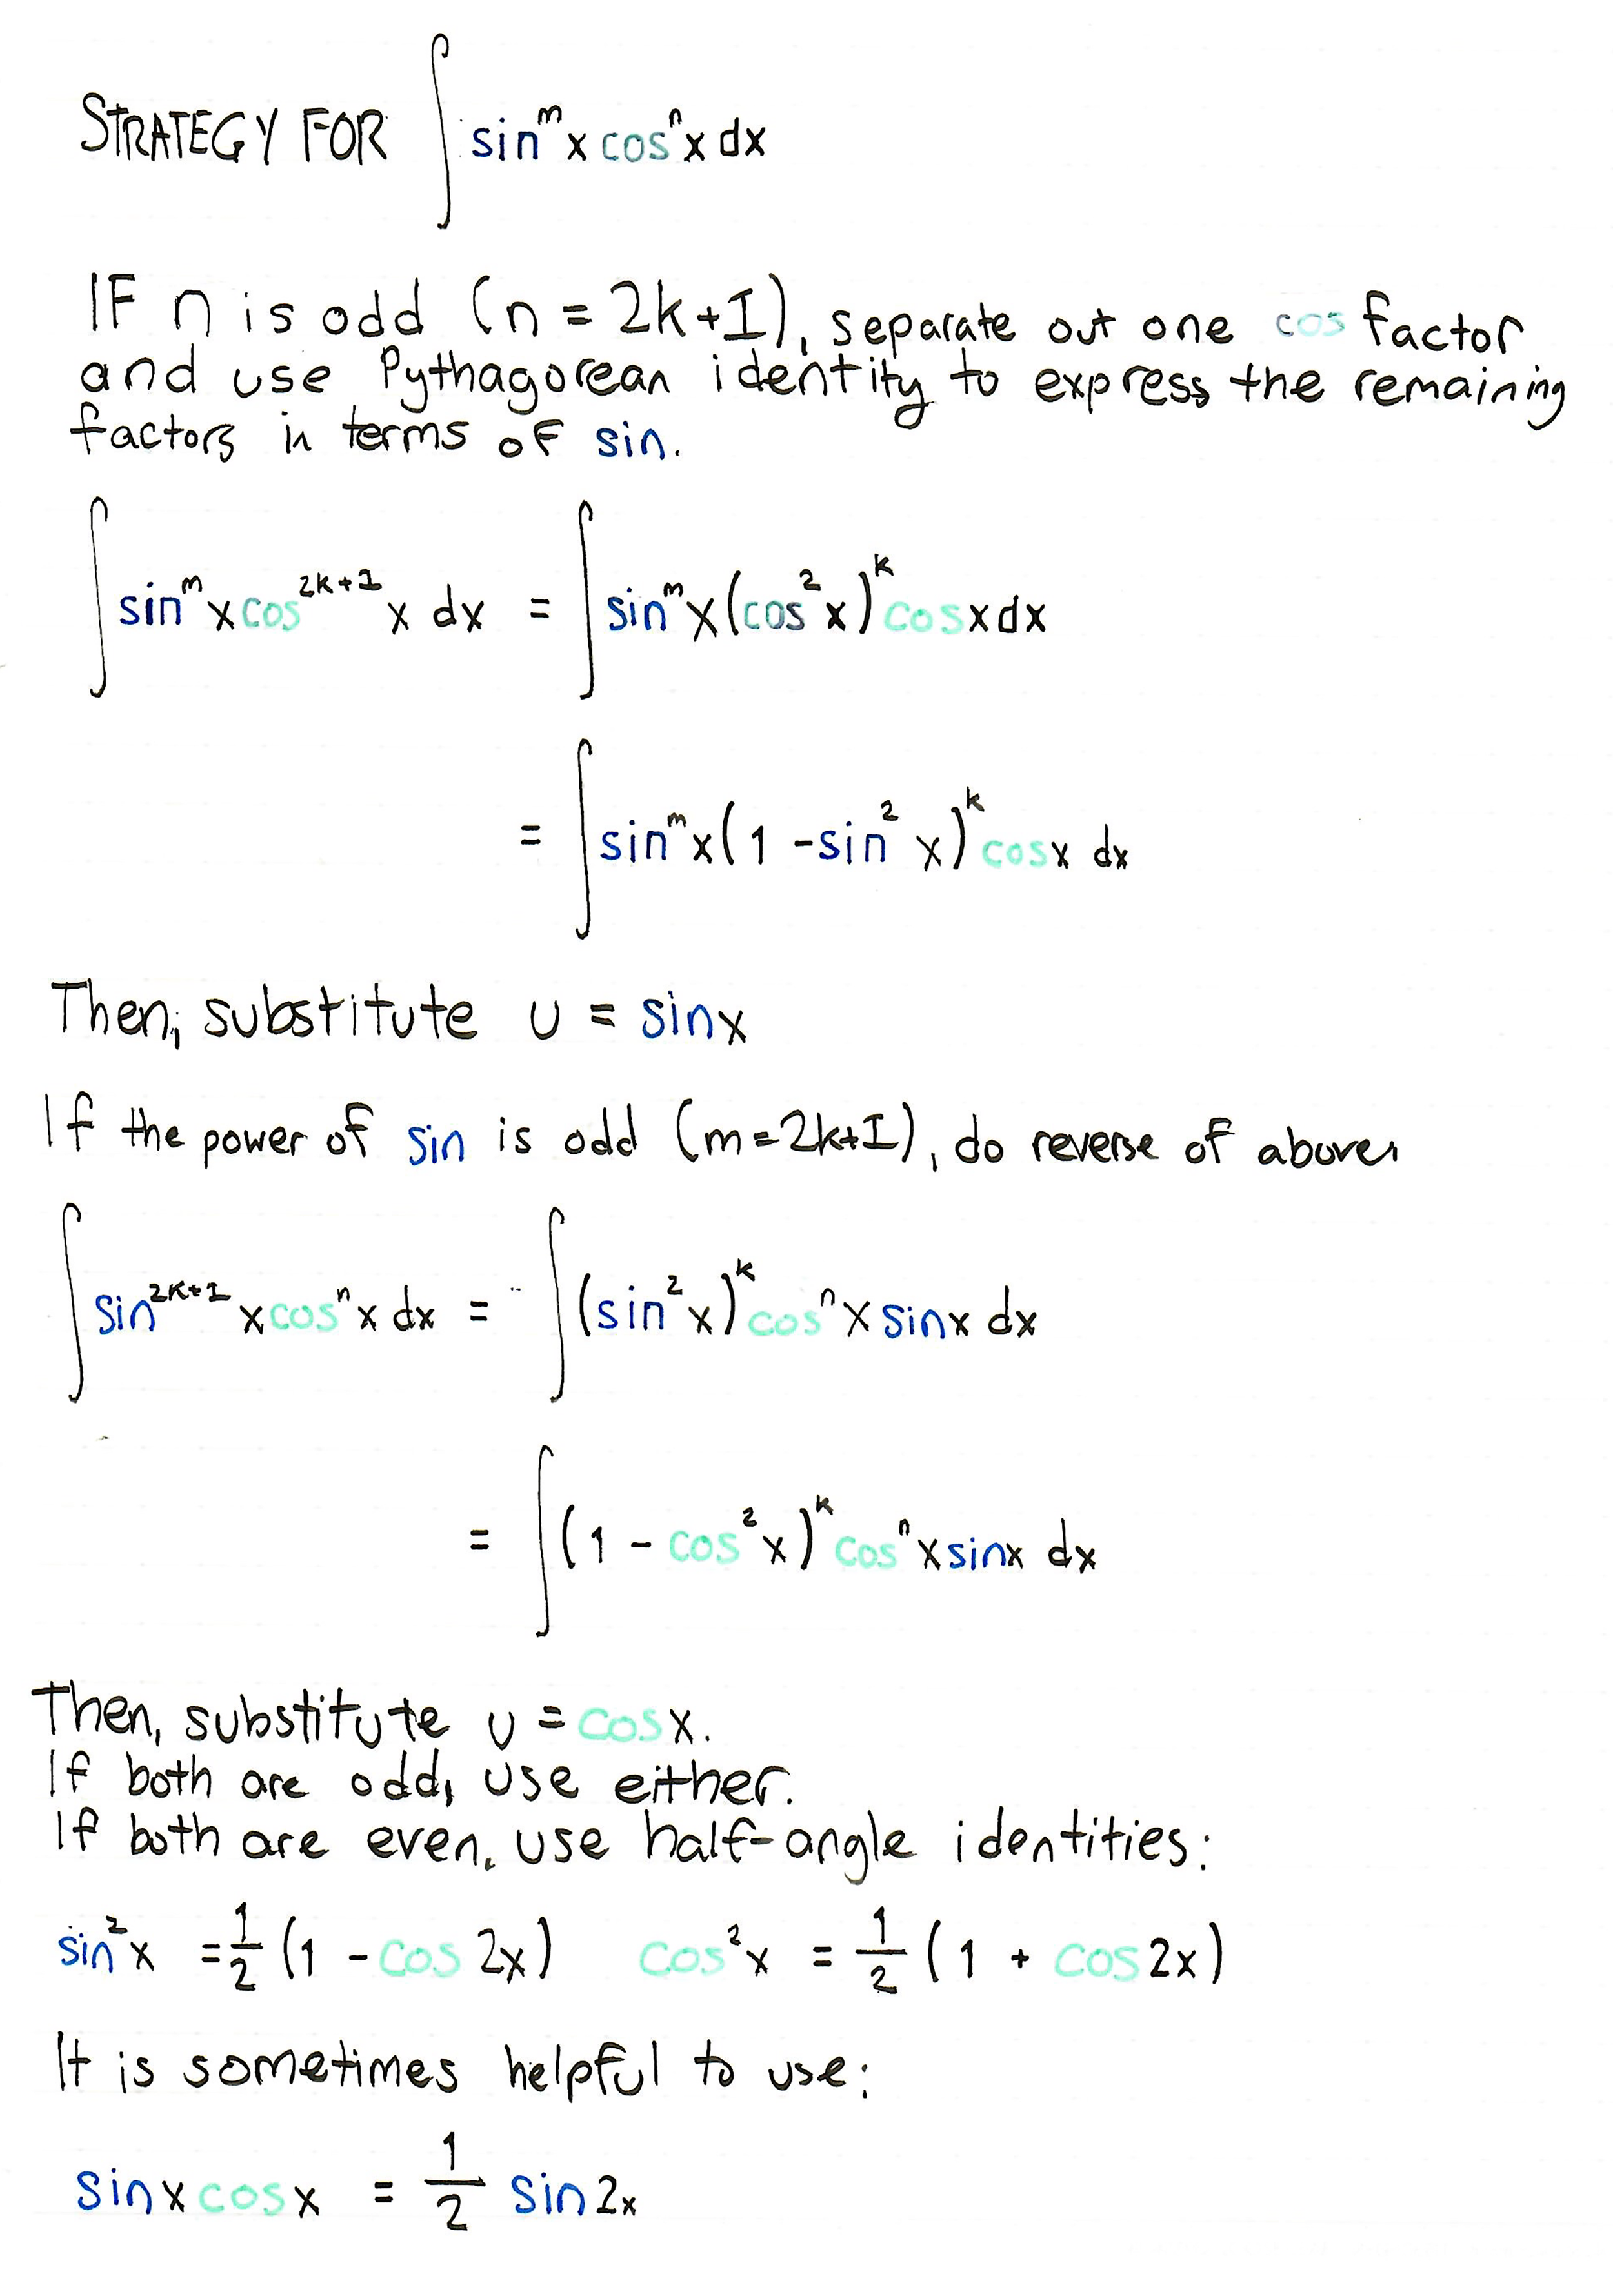 STRATEGY FOR ∫ sin^m x cos^n x dx
IF n is odd (n = 2k+1), separate out one cos factor
and use Pythagorean identity to express the remaining
factors in terms of sin.
∫ sin^m x cos^(2k+1) x dx = ∫ sin^m x (cos^2 x)^k cos x dx
= ∫ sin^m x (1 - sin^2 x)^k cos x dx
Then, substitute u = sin x
If the power of sin is odd (m = 2k+1), do reverse of above.
∫ sin^(2k+1) x cos^n x dx = ∫ (sin^2 x)^k cos^n x sin x dx
= ∫ (1 - cos^2 x)^k cos^n x sin x dx
Then, substitute u = cos x.
If both are odd, use either.
If both are even, use half-angle identities:
sin^2 x = 1/2 (1 - cos 2x) cos^2 x = 1/2 (1 + cos 2x)
It is sometimes helpful to use:
sin x cos x = 1/2 sin 2x